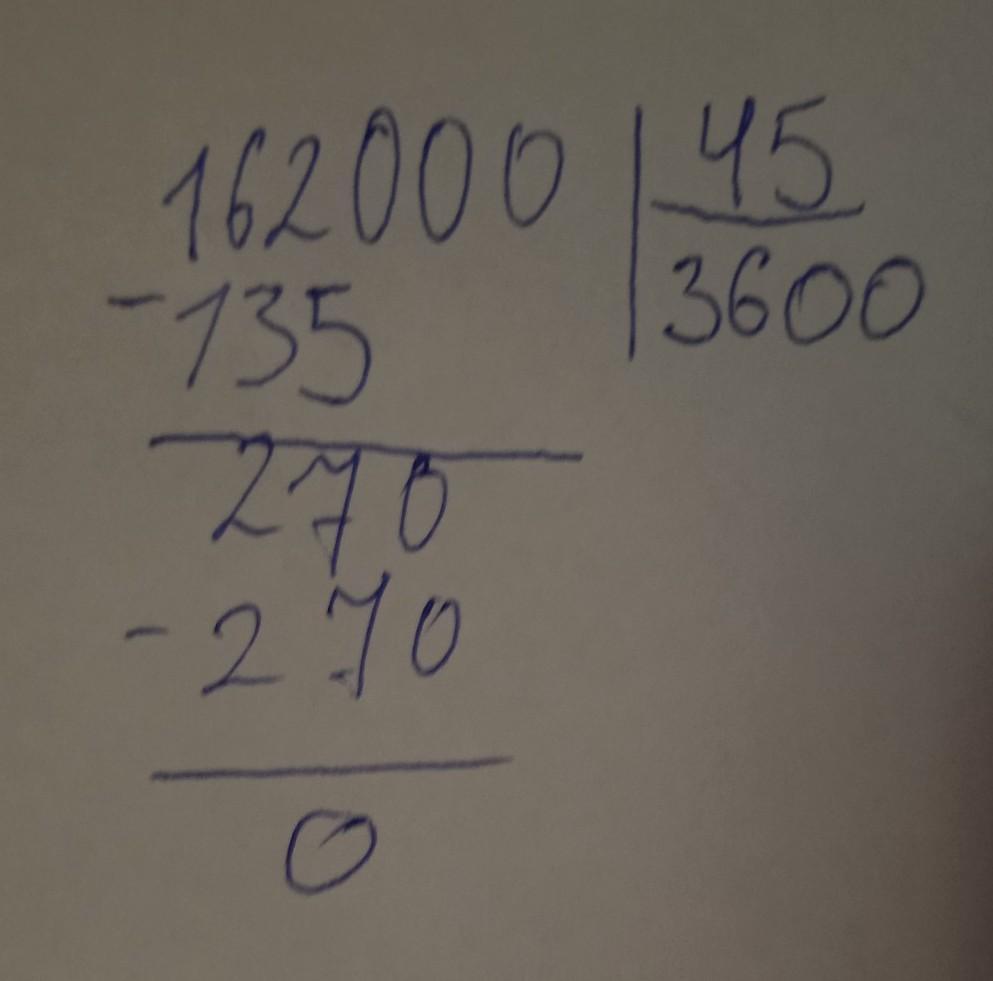 162000 | 45
-135 | 3600
270
-270
0